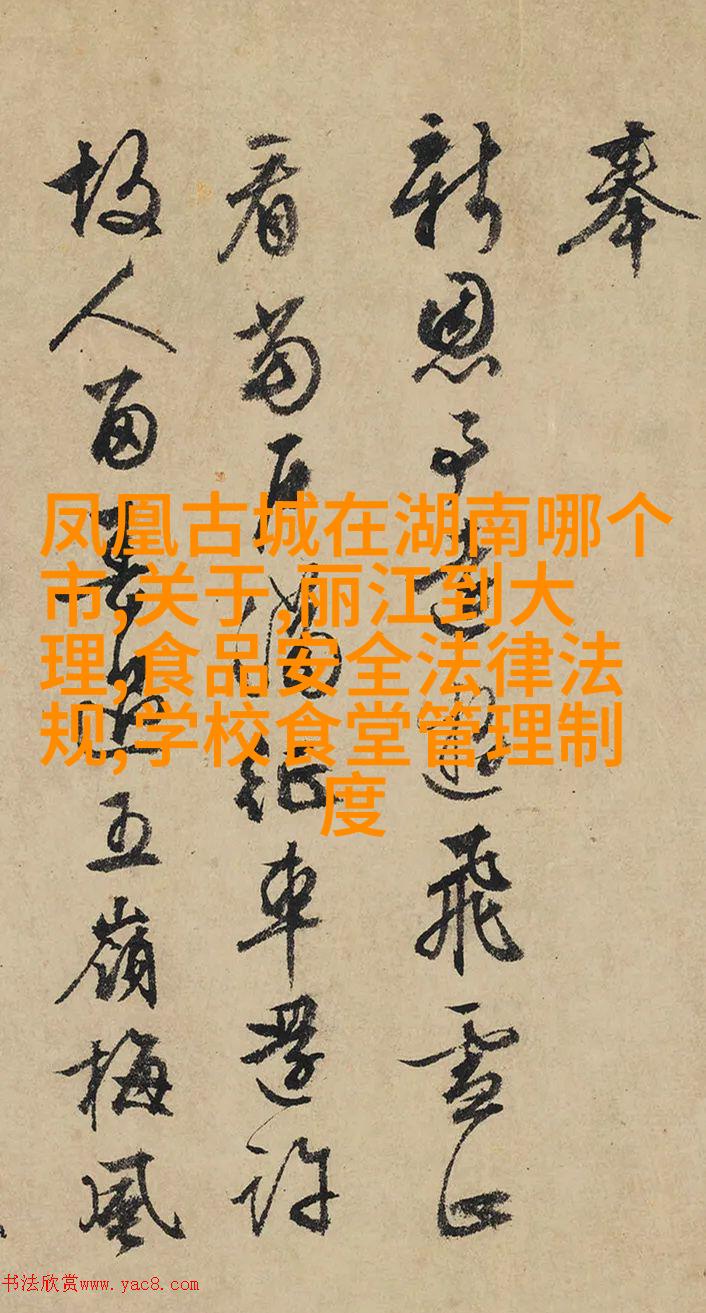 奉
新恩予飛雪
看萬瓦滿征車還許
故人留五嶺梅風
凤凰古城在湖南哪个
市,关于,丽江到大
理,食品安全法律法
规,学校食堂管理制
度
书法欣赏www.yac8.com